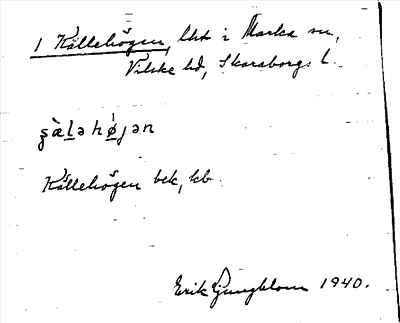 1 Källehögen, lht i Marka sn,
Vilske hd, Skaraborgs l.
ʂàləhǿjən
Källehögen bek, kb
Erik Ljungblom 1940.